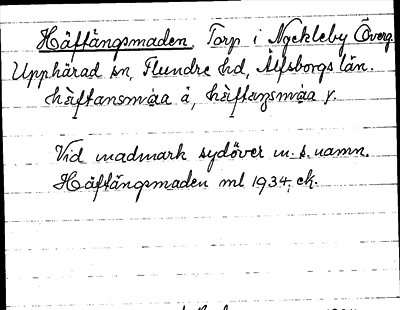 Häftängsmaden. Torp i Nyckleby Överg.
Upphärad sn, Flundre hd, Älfsborgs län.
hä̀ftansmåa å, hä̀ftaŋsmåa y.
Vid madmark sydöver m. s. namn.
Häftängsmaden ml 1934, ek.